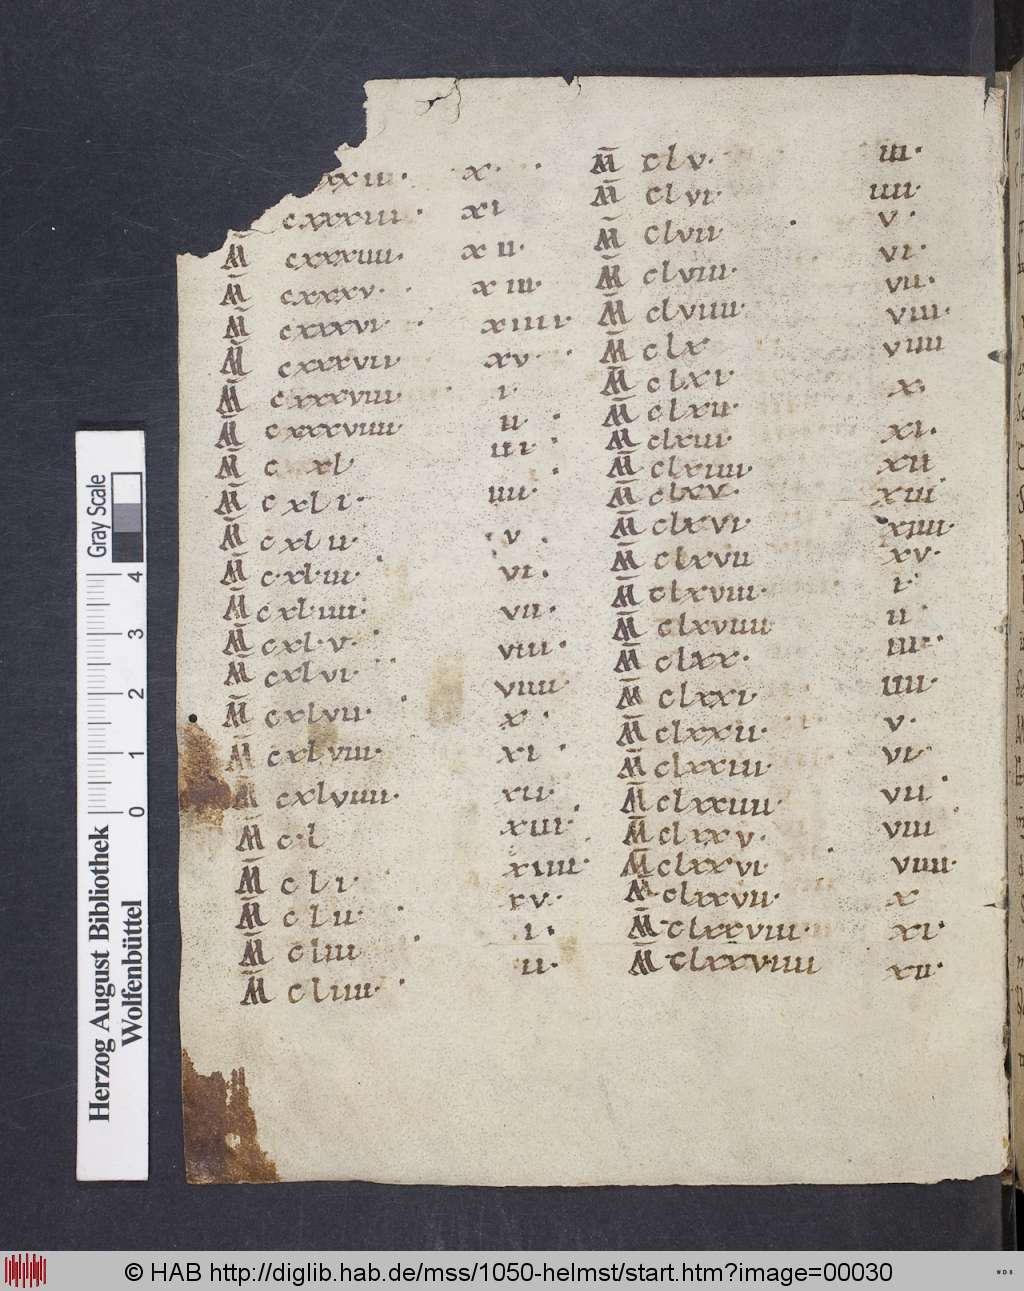 xxiii· x·
cxxxiii· xi
M̄ cxxxiiii· xii·
M̄ cxxxv· xiii·
M̄ cxxxvi· xiiii·
M̄ cxxxvii· xv·
M̄ cxxxviii· i·
M̄ cxxxviiii· ii·
M̄ cxl iii·
M̄ cxli· iiii·
M̄ cxlii· v·
M̄ cxliii· vi·
M̄ cxliiii· vii·
M̄ cxlv· viii·
M̄ cxlvi· viiii·
M̄ cxlvii· x·
M̄ cxlviii· xi·
M̄ cxlviiii· xii·
M̄ cl xiii·
M̄ cli· xiiii·
M̄ clii· xv·
M̄ cliii i·
M̄ cliiii· ii·
M̄ clv· iii·
M̄ clvi· iiii·
M̄ clvii· v·
M̄ clviii· vi·
M̄ clviiii· vii·
M̄ clx viii·
M̄ clxi· viiii
M̄ clxii· x·
M̄ clxiii· xi·
M̄ clxiiii· xii
M̄ clxv· xiii
M̄ clxvi· xiiii·
M̄ clxvii xv·
M̄ clxviii· i·
M̄ clxviiii ii
M̄ clxx· iii·
M̄ clxxi· iiii·
M̄ clxxii· v·
M̄ clxxiii· vi·
M̄ clxxiiii· vii
M̄ clxxv· viii
M̄ clxxvi· viiii·
M̄ clxxvii· x
M̄ clxxviii· xi·
M̄ clxxviiii xii·
Gray Scale
0 1 2 3 4
Herzog August Bibliothek
Wolfenbüttel
© HAB http://diglib.hab.de/mss/1050-helmst/start.htm?image=00030